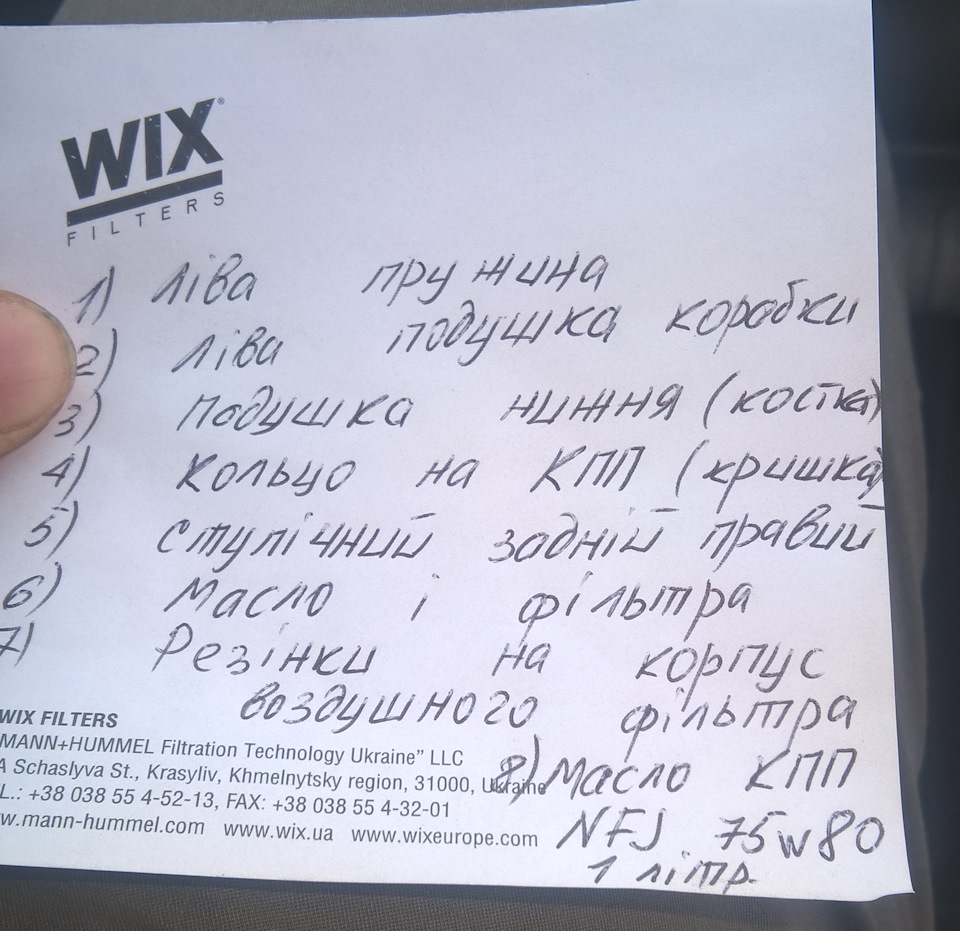 WIX®
FILTERS
1) Ліва пружина
2) Ліва подушка коробки
3) Подушка нижня (костка)
4) Кольцо на КПП (кришка)
5) Ступічний задній правий
6) Масло і фільтра
7) Резінки на корпус
воздушного фільтра
WIX FILTERS
MANN+HUMMEL Filtration Technology Ukraine” LLC
A Schaslyva St., Krasyliv, Khmelnytsky region, 31000, Ukraine
L.: +38 038 55 4-52-13, FAX: +38 038 55 4-32-01
w.mann-hummel.com www.wix.ua www.wixeurope.com
8) Масло КПП
NFJ 75w80
1 літр.